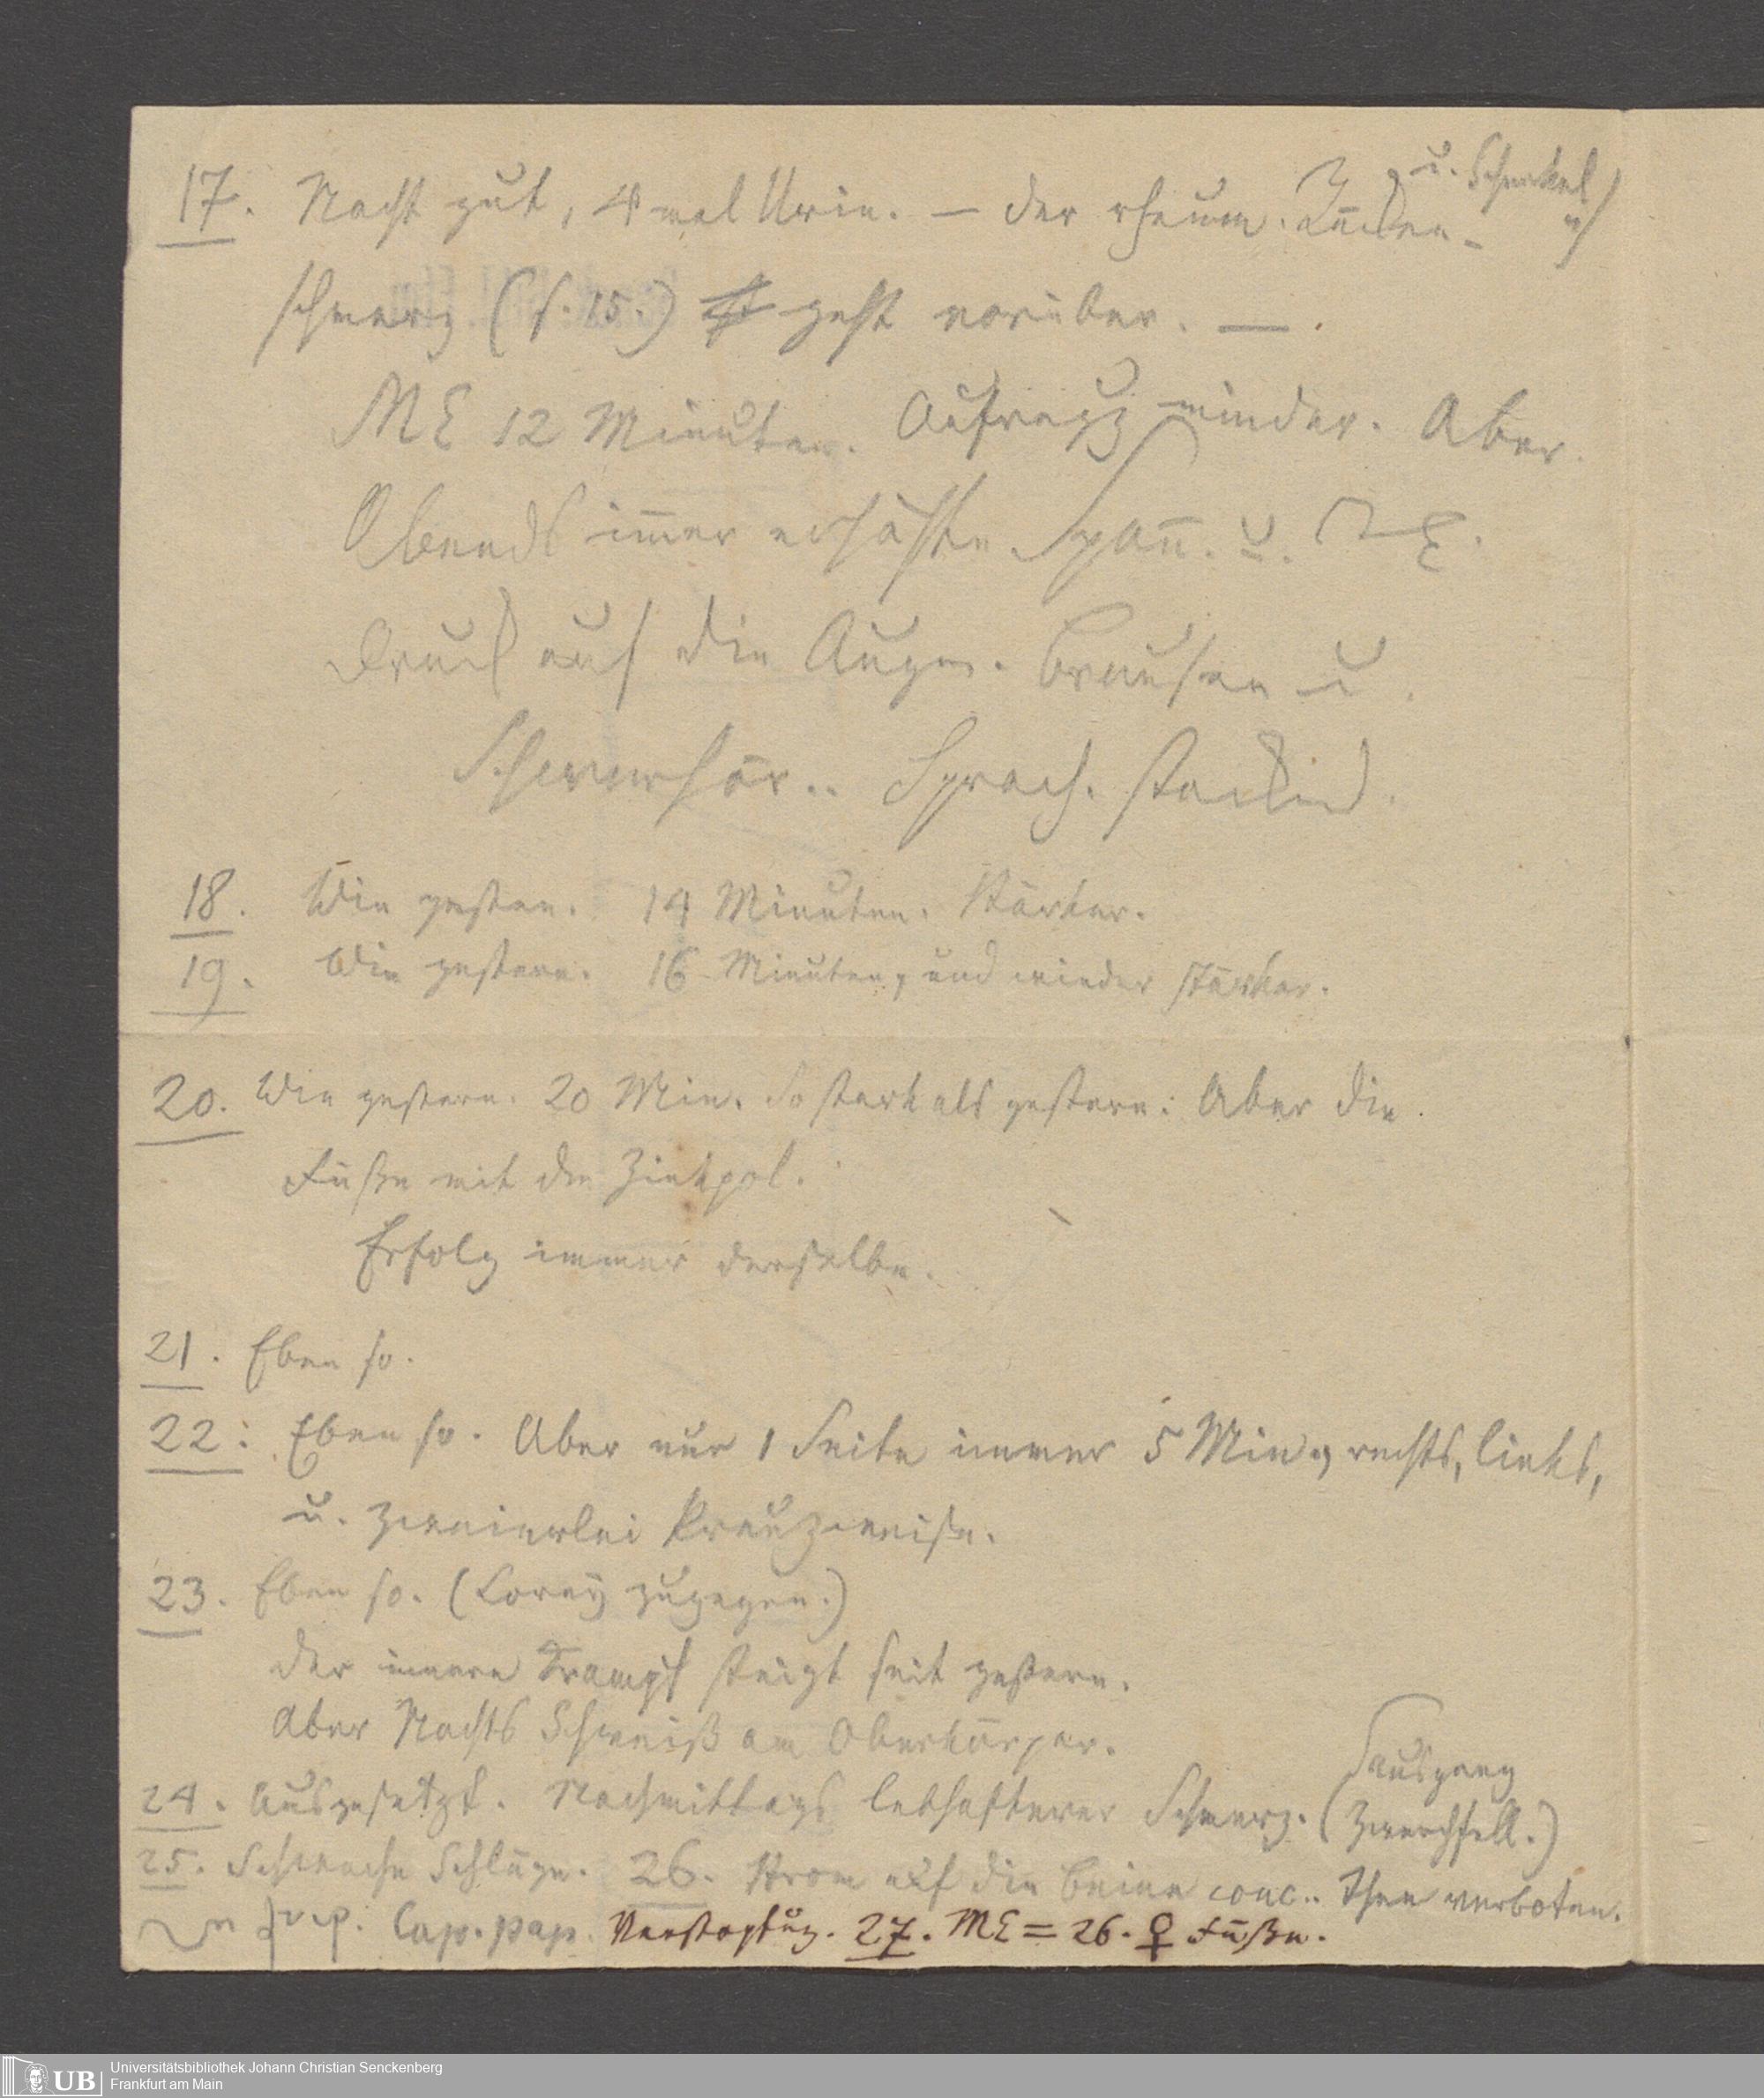 17. Nacht gut, 4 mal Urin. — der rheum. Rücken- u. Schenkel
schmerz (s. 15.) geht vorüber. —.
ME 12 Minuten. Aufregg minder. Aber
Abends immer erhöhte Spann. u.
Druck auf die Augen. Brausen u.
Schwerhör.. Sprach. stockend.
18. Wie gestern. 14 Minuten. Stärker.
19. Wie gestern. 16 Minuten, und wieder stärker.
20. Wie gestern. 20 Min. So stark als gestern. Aber die
Füße mit dem Zinkpol.
Erfolg immer derselbe.
21. Eben so.
22. Eben so. Aber nur 1 Seite immer 5 Min., rechts, links,
u. zweierlei kreuzweise.
23. Eben so. (Lorey zugegen.)
der innere Krampf steigt seit gestern.
Aber Nachts Schweiß am Oberkörper.
24. Ausgesetzt. Nachmittags lebhafterer Schmerz. (Zwerchfell.)
Ausgang
25. Schwache Schläge. 26. Strom auf die Beine conc.. Thee verboten.
Cap. pap. Verstopfung. 27. ME = 26. ♀ Füße.
Universitätsbibliothek Johann Christian Senckenberg
Frankfurt am Main
UB